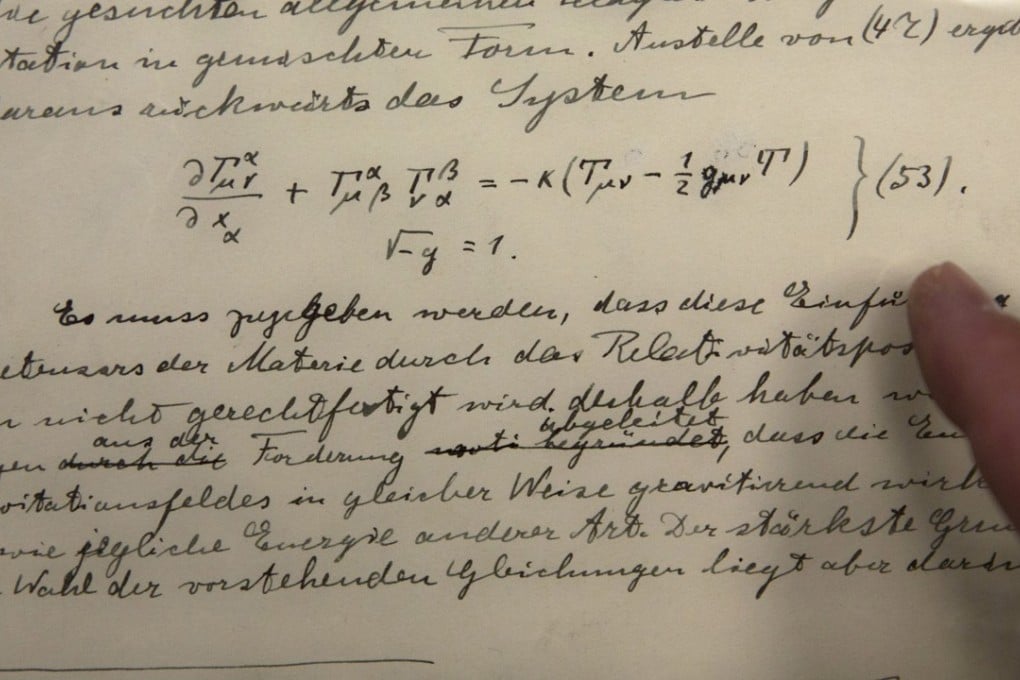 gesuchten allgemeinen
tation in gemischten Form. Anstelle von (47) ergeb
araus rückwärts das System
∂Γ^α_μν / ∂x_α + Γ^α_μβ Γ^β_να = −κ(T_μν − 1/2 g_μν T) } (53).
√−g = 1.
Es muss zugegeben werden, dass diese Einfü
etensors der Materie durch das Relativitätspos
n nicht gerechtfertigt wird. deshalb haben w
aus der abgeleitet
gen durch die Forderung begründet, dass die En
vitationsfeldes in gleicher Weise gravitierend wirk
wie jegliche Energie anderer Art. Der stärkste Gru
Wahl der vorstehenden Gleichungen liegt aber darin